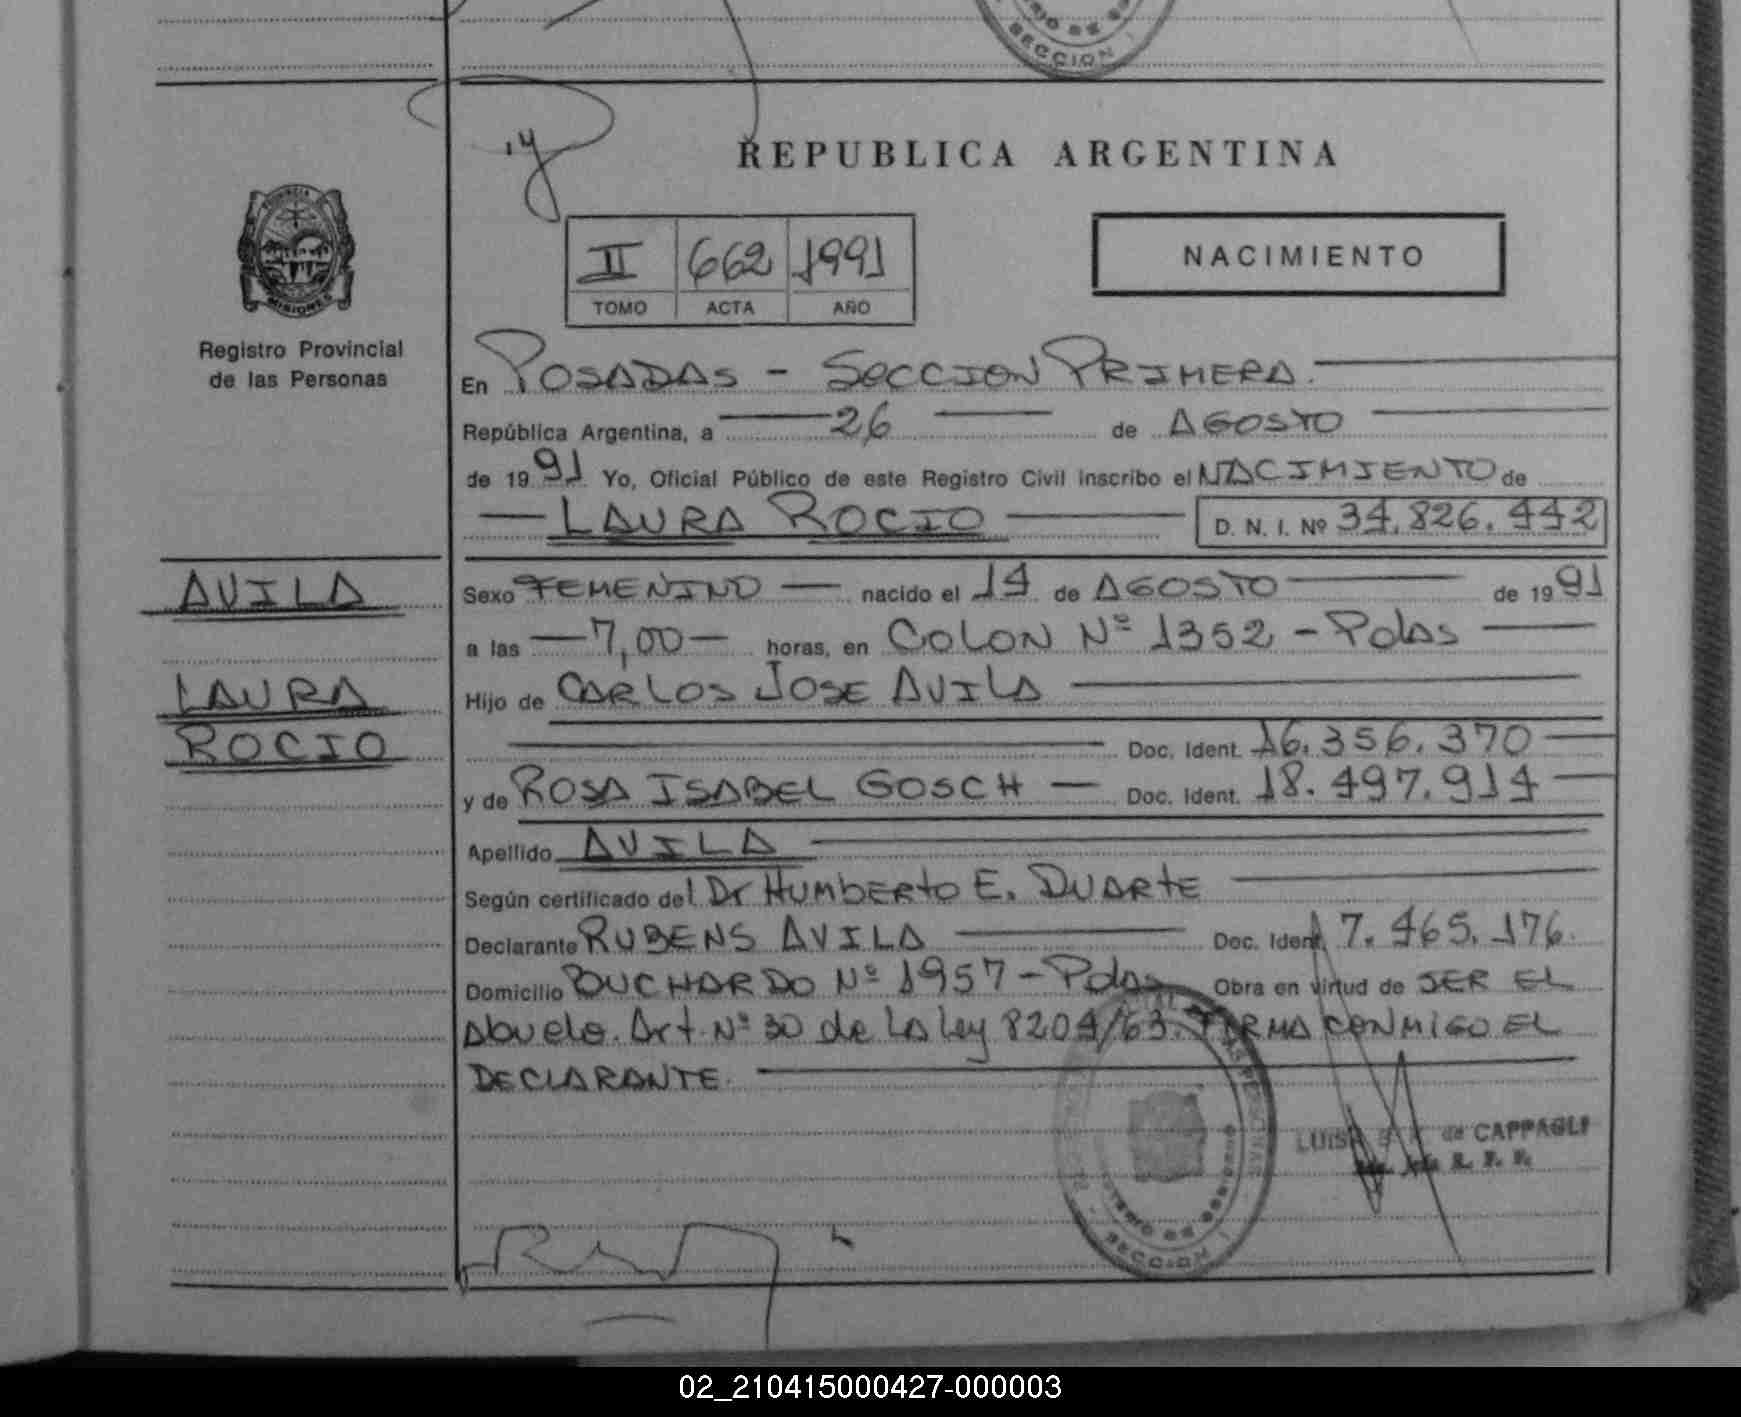 SECCION I
REPUBLICA ARGENTINA
PROVINCIA
MISIONES
Registro Provincial
de las Personas
II 662 1991
TOMO ACTA AÑO
NACIMIENTO
En POSADAS - SECCION PRIMERA.
República Argentina, a 26 de AGOSTO
de 1991 Yo, Oficial Público de este Registro Civil inscribo el NACIMIENTO de
LAURA ROCIO D. N. I. Nº 34.826.442
AVILA
LAURA
ROCIO
Sexo FEMENINO nacido el 14 de AGOSTO de 1991
a las 7,00 horas, en COLON Nº 1352 - Pdas
Hijo de CARLOS JOSE AVILA
Doc. Ident. 16.356.370
y de ROSA ISABEL GOSCH Doc. Ident. 18.497.914
Apellido AVILA
Según certificado del Dr HUMBERTO E. DUARTE
Declarante RUBENS AVILA Doc. Ident. 7.465.176.
Domicilio BUCHARDO Nº 1957 - Pdas Obra en virtud de SER EL
Abuelo. Art. Nº 30 de LA Ley 8204/63. FIRMA CONMIGO EL
DECLARANTE.
LUISA de CAPPAGLI
SECCION I
02_210415000427-000003